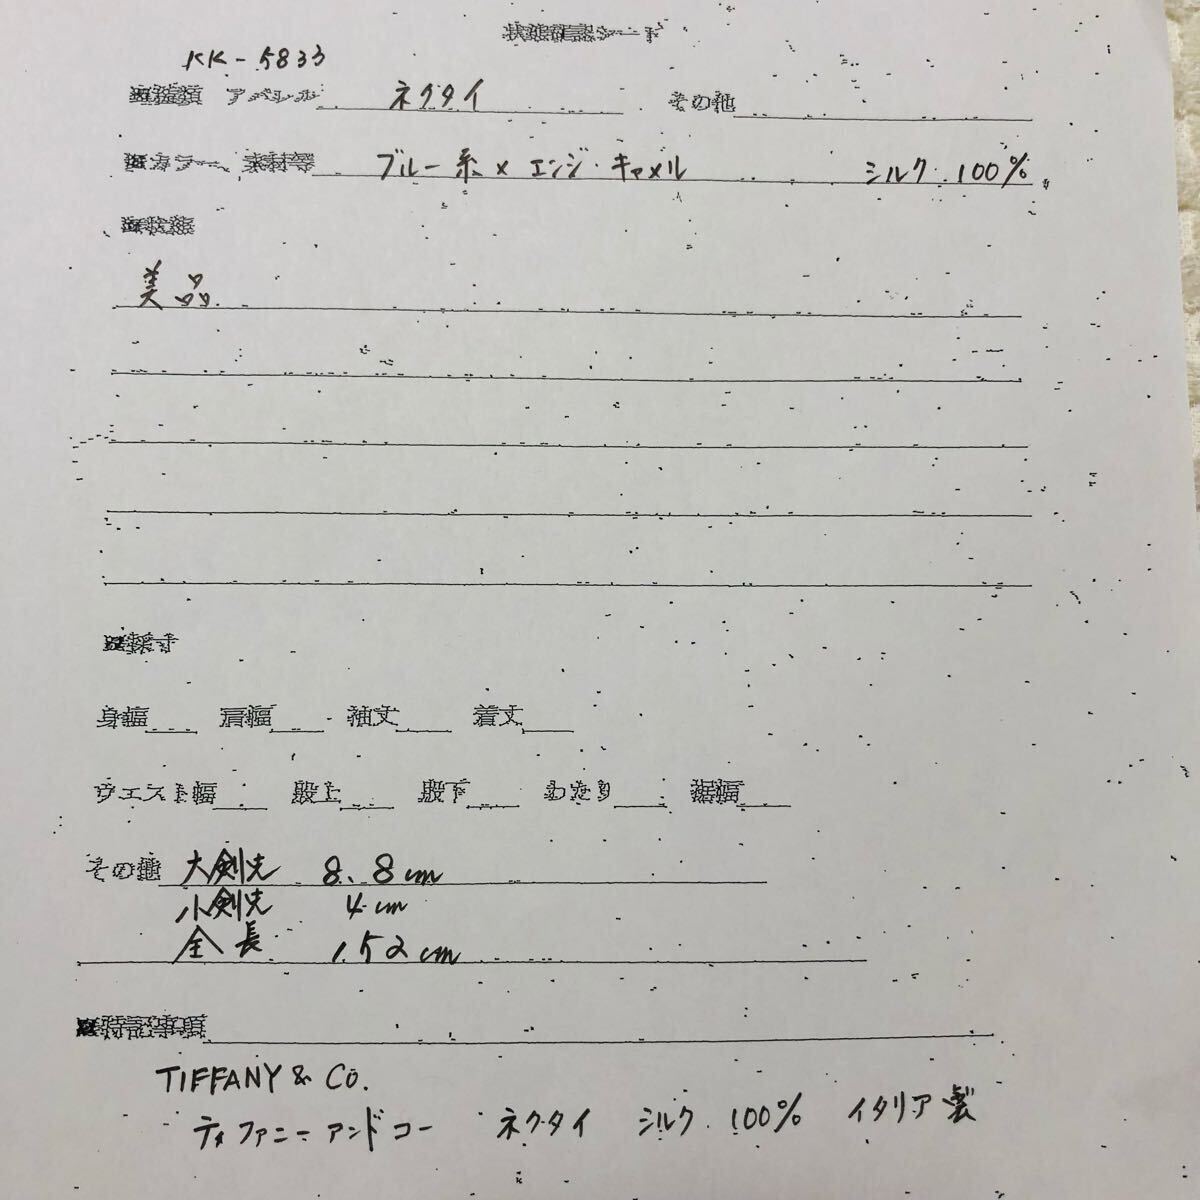 状態確認シート
KK-5833
■種類 アパレル ネクタイ その他
■カラー、素材等 ブルー系×エンジ・キャメル シルク100%
■状態
美品
■採寸
身幅 肩幅 袖丈 着丈
ウエスト幅 股上 股下 わたり 裾幅
その他 大剣先 8.8cm
小剣先 4cm
全長 152cm
■特記事項
TIFFANY & CO.
ティファニーアンドコー ネクタイ シルク100% イタリア製